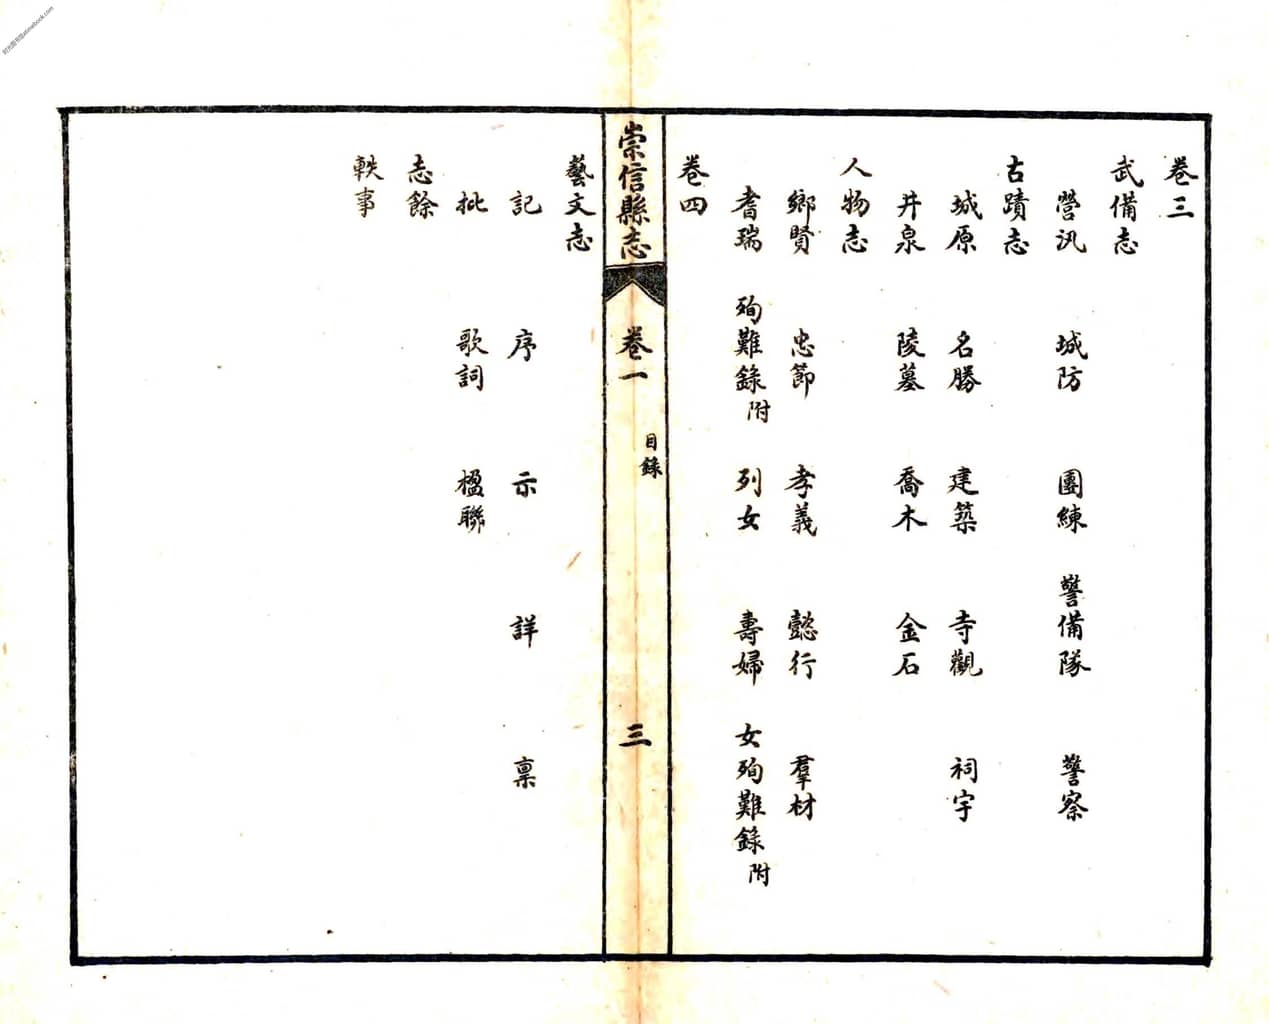 卷三
武備志
營汛 城防 團練 警備隊 警察
古蹟志
城原 名勝 建築 寺觀 祠宇
井泉 陵墓 喬木 金石
人物志
鄉賢 忠節 孝義 懿行 羣材
耆瑞 殉難錄附 列女 壽婦 女殉難錄附
卷四
崇信縣志 卷一 目錄 三
藝文志
記 序 示 詳 稟
批 歌詞 楹聯
志餘
軼事
时光图书馆atimebook.com